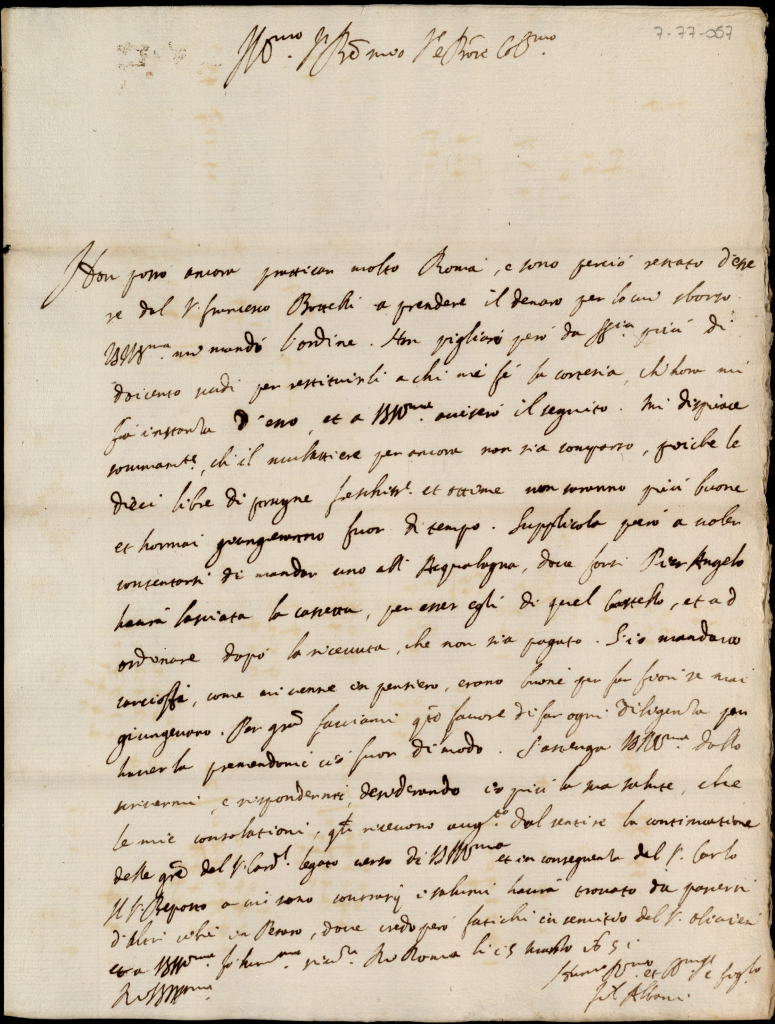 7-77-057
Ill.mo
Non posso ancora pratticar molto Roma, e sono perciò restato d'esse
re dal S. Francesco a prendere il denaro per lo cui sborso
VSIll.ma mi mandò l'ordine. Non pigliarò però da più di
docento scudi per restituirli a chi mi fè la cortesia, ch'hora mi
fà instanza d'essi, et a VSIll.ma avisarò il seguito. Mi dispiace
sommam.te, ch'il mulattiere per ancora non sia comparso, poiche le
dieci libre di prugne freschiss.e et ottime non saranno più buone
et hormai giungeranno fuor di tempo. Supplicola però a voler
contentarsi di mandar uno all'Acqualagna, dove forsi Pier Angelo
haurà lasciata la cassetta, per esser egli di quel Castello, et ad
ordinare dopò la ricevuta, che non sia pagato. S'io mandavo
carcioffi, come mi venne in pensiero, erano buoni per far fiori se mai
giungevano. Per gra facciami q.to favore di far ogni diligenza per
haverla premendomi ciò fuor di modo. S'astenga VSIll.ma dallo
scrivermi, e rispondermi, desiderando io più la sua salute, che
le mie consolationi, q.li ricevono aug.to dal sentire la continuatione
delle gre del S. Card.l legato verso di VSIll.ma et in conseguenza del S. Carlo
Il S. Preposto a cui sono haurà trovato da
in Pesaro, dove credo però fatichi in servitio del S. Olivieri
et a VSIll.ma fò hum.ma Roma li 25 Marzo 1651
Di VSIll.ma
et
Albani